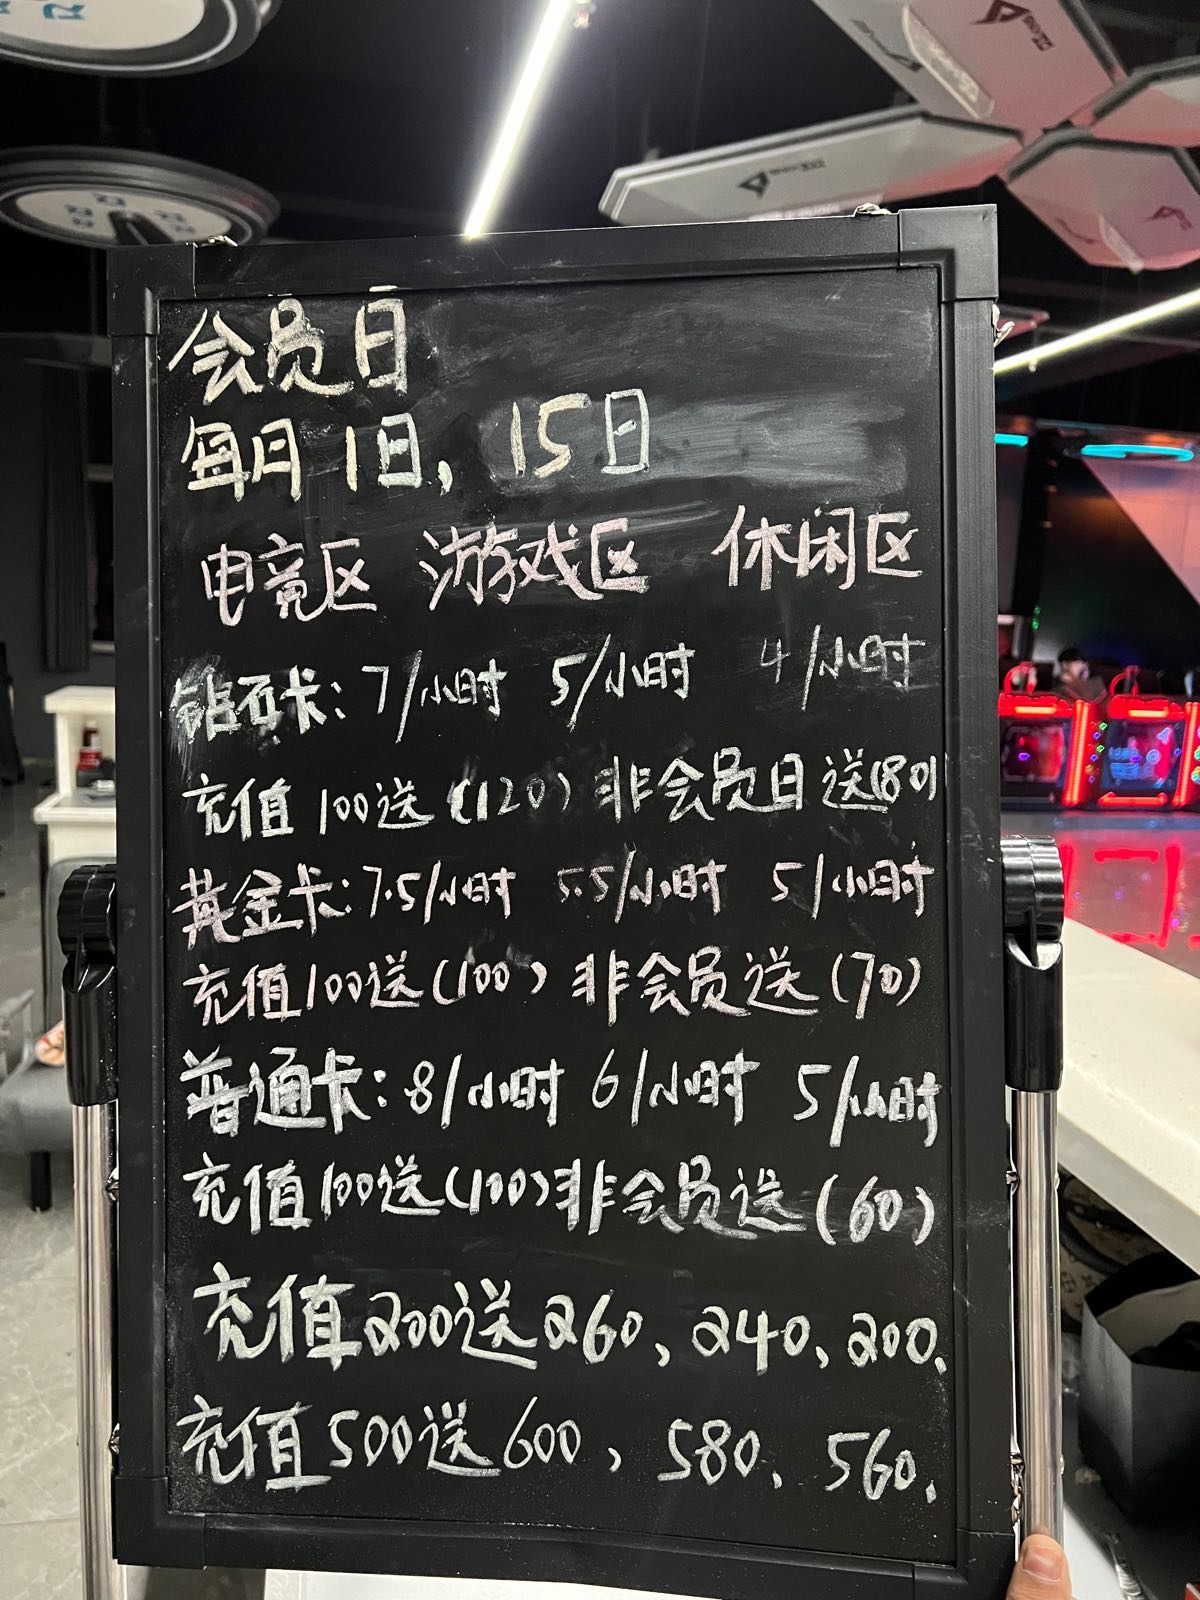 会员日
每月1日，15日
电竞区 游戏区 休闲区
钻石卡：7/小时 5/小时 4/小时
充值100送（120）非会员日送（80）
黄金卡：7.5/小时 5.5/小时 5/小时
充值100送（100）非会员送（70）
普通卡：8/小时 6/小时 5/小时
充值100送（100）非会员送（60）
充值200送260，240，200．
充值500送600，580．560．